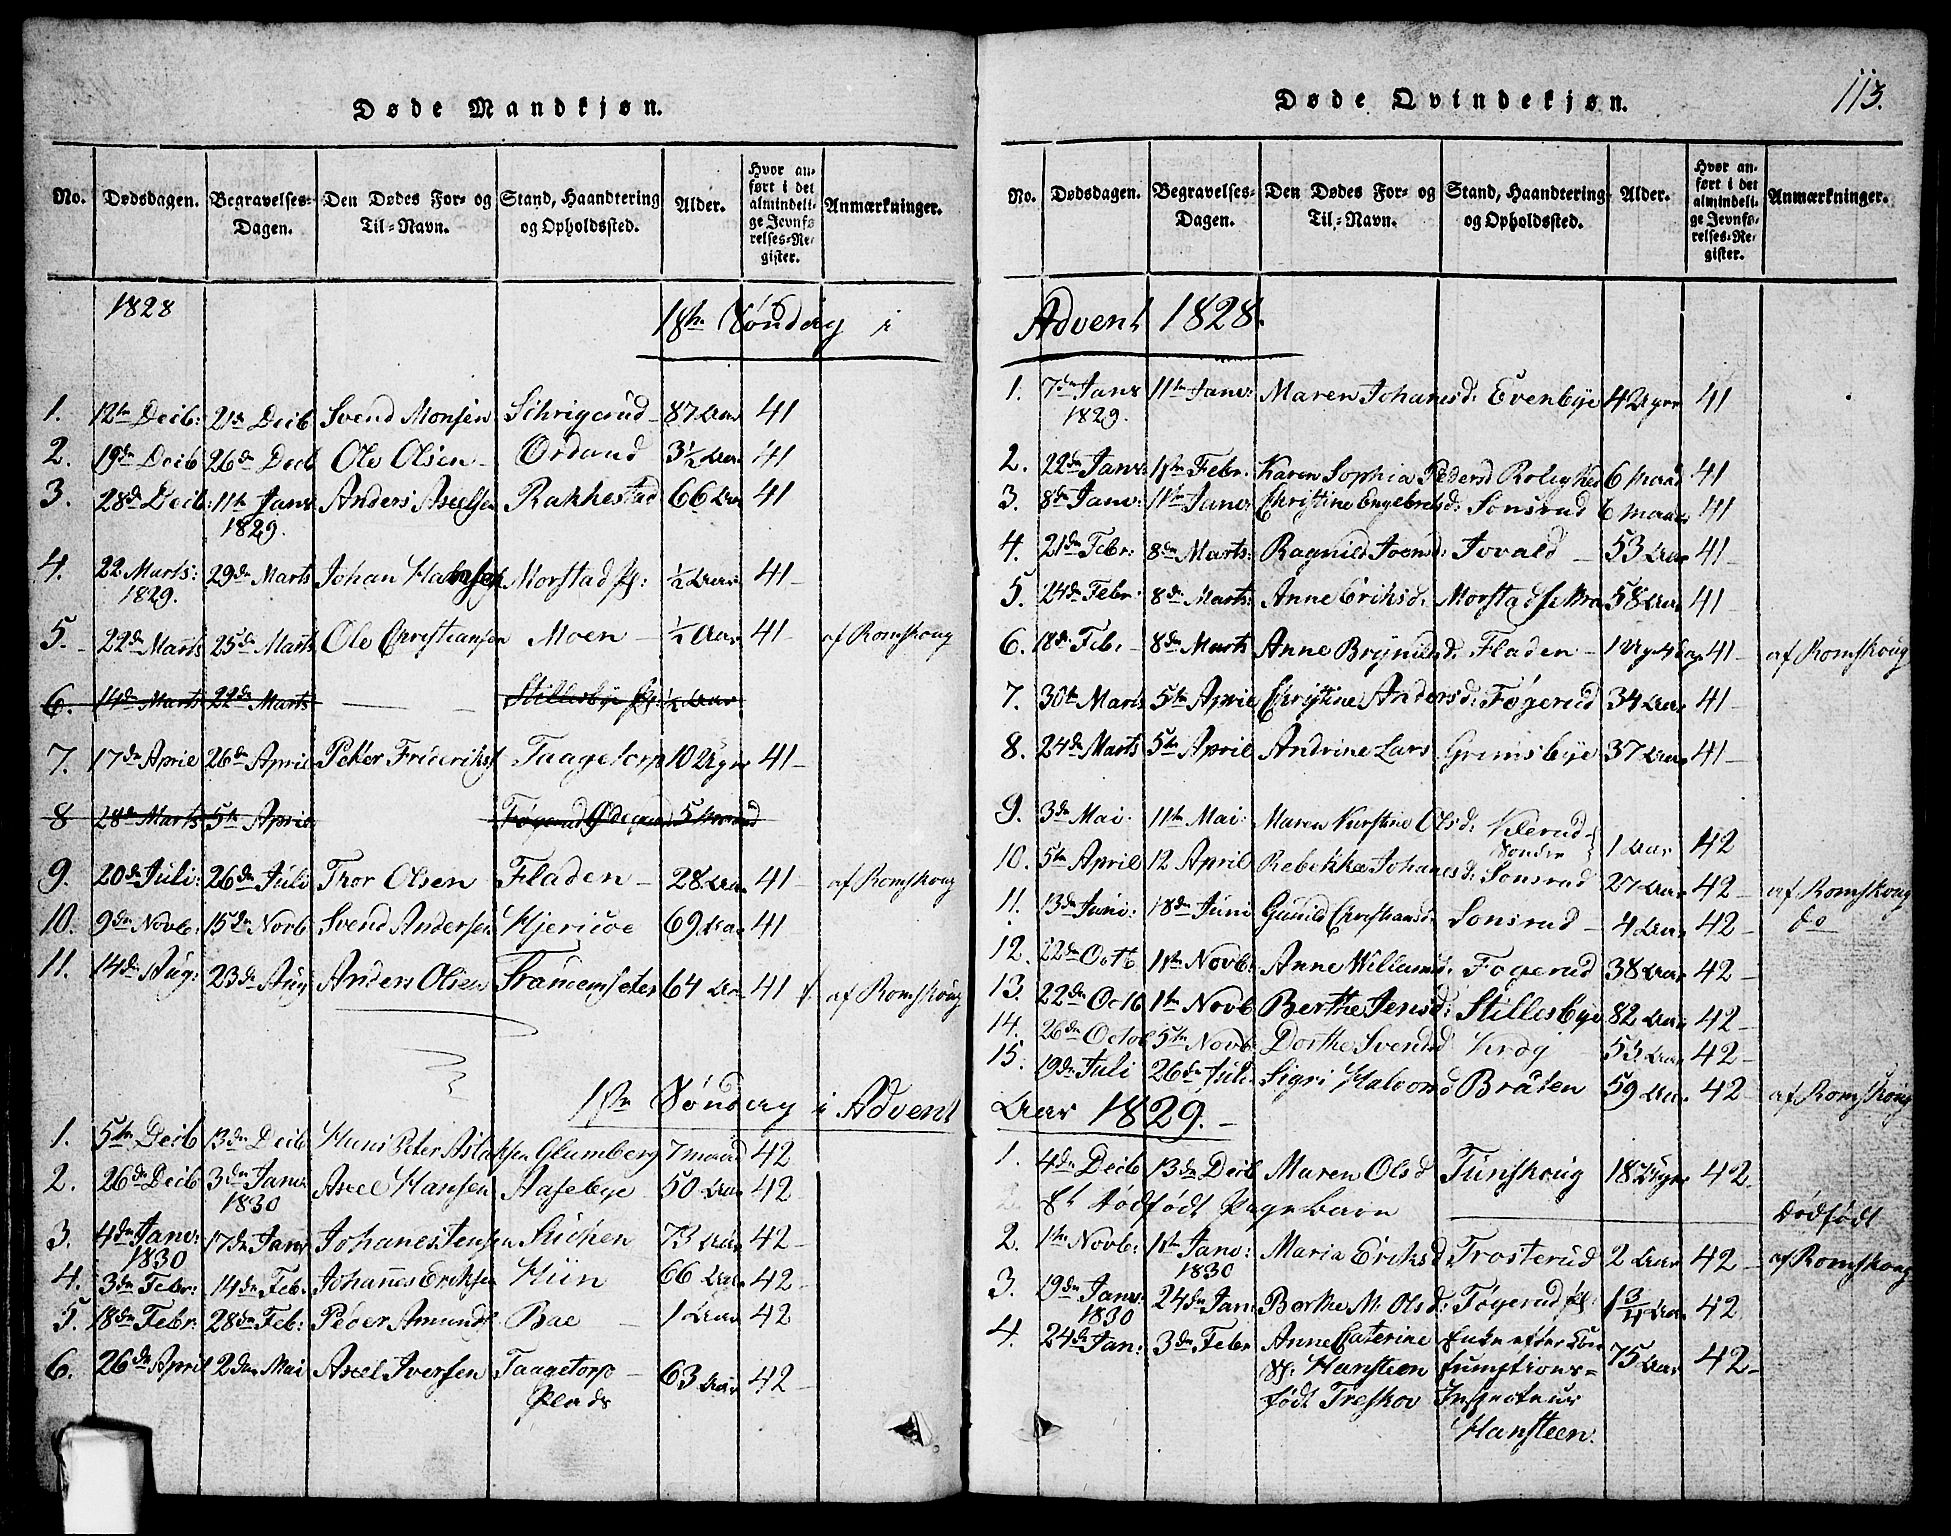 Døde Mandkjøn.
No. Dødsdagen. Begravelses-Dagen. Den Dødes For- og Til-Navn. Stand, Haandtering og Opholdssted. Alder. Hvor anført i det almindelige Jevnførelses-Register. Anmærkninger.
1828 1ste Søndag i
1. 12te Decb: 21de Decb Svend Monsen 87 Aar 41
2. 19de Decb 26de Decb Ole Olsen Ordoud 3½ Aar 41
3. 28de Decb: 11te Janr 1829. Anders Axelsen Rakkestad 66 Aar 41
4. 22 Marts: 1829. 29de Marts Johan Hansen Morstad Pl: ½ Aar 41
5. 22de Marts 25de Marts Ole Christiansen Moen ½ Aar 41 af Romskoug
6. 14de Marts 22de Marts Stillesbye Pl: ½ Aar
7. 17de April 26de April Peter Frideriks Taagetorp 10 Uger 41
8 28de Marts 5te April Føgerud Ødegaard 5 Maaned
9. 20de Juli: 26de Juli Thor Olsen Fladen 28 Aar 41 af Romskoug
10. 9de Novb: 15de Novb Svend Andersen Kjericoe 69 Aar 41
11. 14de Aug: 23de Aug Anders Olsen 64 Aar 41 af Romskoug
1ste Søndag i Advent
1. 5te Decb 13de Decb Hans Peter Aslaksen Glumberg 7 maand 42
2. 26de Decb 3de Janr 1830 Axel Hansen Aasebye 50 Aar 42
3. 4de Janr: 1830 17de Janr Johanes Jensen 73 Aar 42
4. 3de Febr: 14de Feb: Johannes Eriksen Hiin 66 Aar 42
5. 18de Febr: 28de Feb: Peder Amunds Bae 1 Aar 42
6. 26de April 2den Mai Axel Iversen Taagetorp Plads 63 Aar 42
Døde Qvindekjøn.
113.
No. Dødsdagen. Begravelses-Dagen. Den Dødes For- og Til-Navn. Stand, Haandtering og Opholdssted. Alder. Hvor anført i det almindelige Jevnførelses-Register. Anmærkninger.
Advent 1828.
1. 7de Janr 1829. 11te Janr: Maren Johanesd: Evenbye 42 Uger 41
2. 22de Janr: 1ste Febr: Karen Sophia Pedersd Rolighed 6 Maand 41
3. 8de Janr: 11te Janr Christine Engebretsd: Sonsrud 6 Maand 41
4. 21de Febr: 8de Marts: Ragnild Joensd: Tovald 53 Aar 41
5. 24de Febr: 8de Marts: Anne Eriksd: 58 Aar 41
6. 18de Feb: 8de Marts Anne Brynilsd: Fladen 41 af Romskoug
7. 30te Marts 5te April Christine Andersd: Føgerud 34 Aar 41
8. 24de Marts 5te April Andrine Lars Grimsbye 37 Aar 41
9. 3de Mai: 11te Mai: Maren Kirstine Olsd: Kilerud Søndre 1 Aar 42
10. 5te April 12 April Rebekka Johanesd: Sonsrud 27 Aar 42 af Romskoug
11. 13de Juni: 18de Juni Gunild Christiansd: Sonsrud 4 Aar 42 do
12. 22de Octb 1ste Novb: Anne Willumsd: Føgerud 38 Aar 42
13. 22de Octb 1te Novb Berthe Jensd: Stillesbye 82 Aar 42
14. 26de Octob 5te Novb Dorthe Svendsd Krog 53 Aar 42
15. 19de Juli 26de Juli. Sigri Halvorsd Bråten 59 Aar 42 af Romskoug
Aar 1829.
1. 4de Decb 13de Decb Maren Olsd Tunskoug 18 Uger 42.
Et Dødfødt Pigebarn Dødfødt
2. 1te Novb: 1ste Janr: 1830 Maria Eriksd: Trosterud 2 Aar 42 af Romskoug
3. 19de Janr: 1830 24de Jan: Berthe M. Olsd: Føgerud Pl: 1 3/4 Aar 42
4. 24de Jan: 3de Febr Anne Caterine Enke efter Con 75 Aar 42
Sl. Hansteen sumptions=
født Treskov Inspecteur
Hansteen.